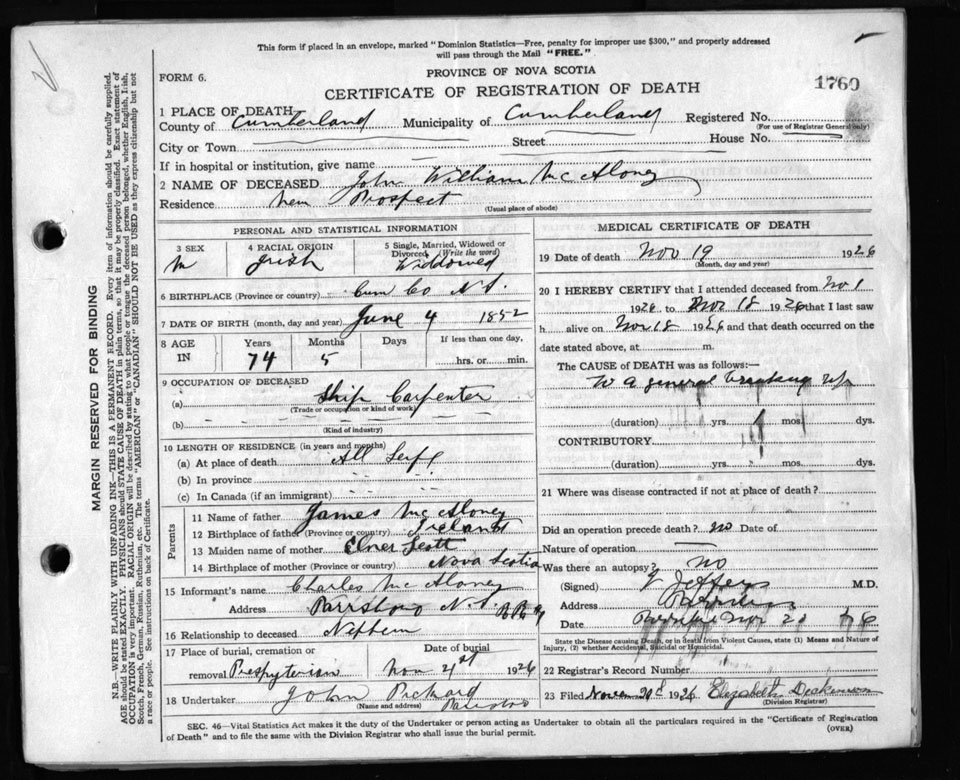 This form if placed in an envelope, marked "Dominion Statistics—Free, penalty for improper use $300," and properly addressed
will pass through the Mail "FREE."
FORM 6.
PROVINCE OF NOVA SCOTIA
CERTIFICATE OF REGISTRATION OF DEATH
1760
1 PLACE OF DEATH
County of Cumberland Municipality of Cumberland Registered No.
(For use of Registrar General only)
City or Town Street House No.
If in hospital or institution, give name
2 NAME OF DECEASED John William McAloney
Residence New Prospect
(Usual place of abode)
PERSONAL AND STATISTICAL INFORMATION
3 SEX 4 RACIAL ORIGIN 5 Single, Married, Widowed or
Divorced (Write the word)
M Irish Widowed
6 BIRTHPLACE (Province or country) Cum Co N.S.
7 DATE OF BIRTH (month, day and year) June 4 1852
8 AGE IN Years Months Days If less than one day,
74 5 hrs. or min.
9 OCCUPATION OF DECEASED
(a) Ship Carpenter
(Trade or occupation or kind of work)
(b)
(Kind of industry)
10 LENGTH OF RESIDENCE (in years and months)
(a) At place of death All Life
(b) In province
(c) In Canada (if an immigrant)
Parents
11 Name of father James McAloney
12 Birthplace of father (Province or country) Ireland
13 Maiden name of mother Scott
14 Birthplace of mother (Province or country) Nova Scotia
15 Informant's name Charles McAloney
Address Parrsboro N.S.
16 Relationship to deceased Nephew
17 Place of burial, cremation or Date of burial
removal Presbyterian Nov 21st 1926
18 Undertaker John Pickard
(Name and address) Parrsboro
MEDICAL CERTIFICATE OF DEATH
19 Date of death Nov 19 1926
(Month, day and year)
20 I HEREBY CERTIFY that I attended deceased from Nov 1
1926 to Nov 18 1926 that I last saw
h alive on Nov 18 1926 and that death occurred on the
date stated above, at m.
The CAUSE OF DEATH was as follows:
a general breaking up
(duration) yrs. mos. dys.
CONTRIBUTORY
(duration) yrs. mos. dys.
21 Where was disease contracted if not at place of death?
Did an operation precede death? no Date of
Nature of operation
Was there an autopsy? no
(Signed) Jeffers M.D.
Address
Date Nov 20
State the Disease causing Death, or in death from Violent Causes, state (1) Means and Nature of
Injury, (2) whether Accidental, Suicidal or Homicidal.
22 Registrar's Record Number
23 Filed 1926 Elizabeth Dickinson
(Division Registrar)
SEC. 46—Vital Statistics Act makes it the duty of the Undertaker or person acting as Undertaker to obtain all the particulars required in the "Certificate of Registration
of Death" and to file the same with the Division Registrar who shall issue the burial permit.
(OVER)
MARGIN RESERVED FOR BINDING
N.B.—WRITE PLAINLY WITH UNFADING INK—THIS IS A PERMANENT RECORD. Every item of information should be carefully supplied.
AGE should be stated EXACTLY. PHYSICIANS should STATE CAUSE OF DEATH in plain terms, so that it may be properly classified. Exact statement of
OCCUPATION is very important. RACIAL ORIGIN will be described by stating to what people or tongue the deceased person belonged, whether English, Irish,
Scotch, French, German, Russian, Ruthenian, etc. The terms "AMERICAN" or "CANADIAN" SHOULD NOT BE USED as they express citizenship but not
a race or people. See instructions on back of Certificate.